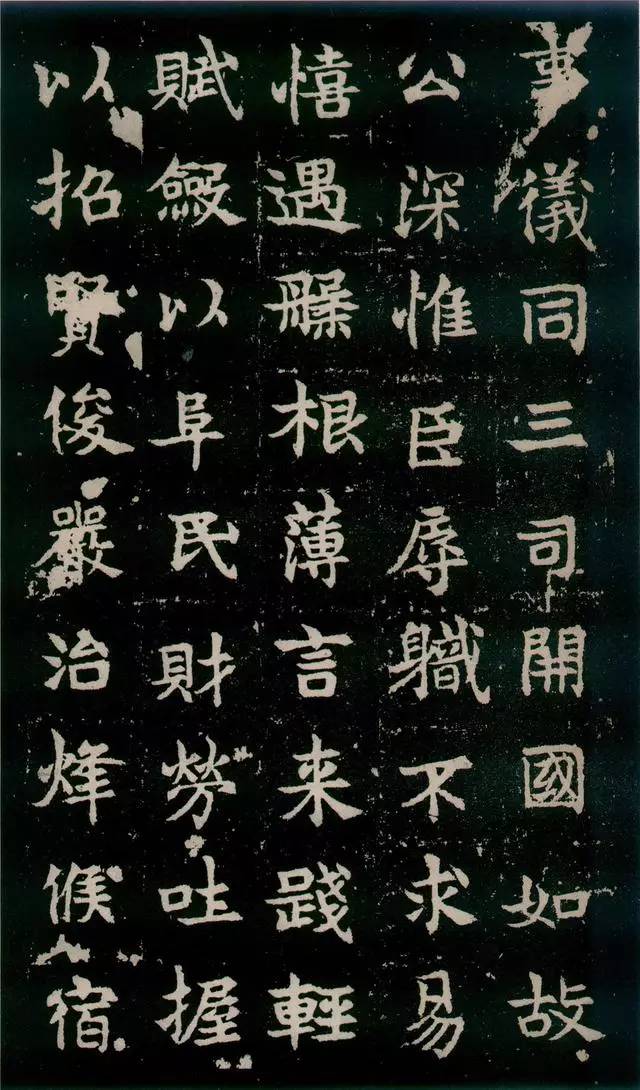 事儀同三司開國如故
公深惟臣辱職不求易
憘遇艱根薄言来踐輕
賦斂以阜民財勞吐握
以招賢俊嚴治烽候宿